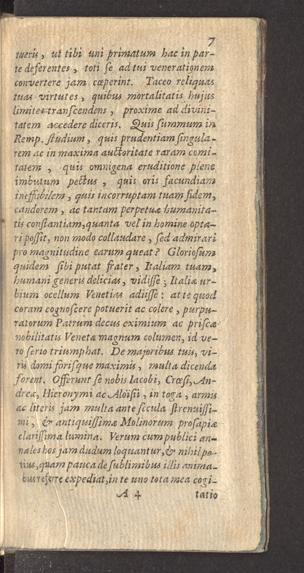 7
tueris, ut tibi uni primatum hac in par-
te deferentes, toti se ad tui venerationem
convertere jam cœperint. Taceo reliquas
tuas virtutes, quibus mortalitatis hujus
limites transcendens, proxime ad divini-
tatem accedere diceris. Quis summum in
Remp. studium, quis prudentiam singula-
rem ac in maxima auctoritate raram comi-
tatem, quis omnigena eruditione plene
imbutum pectus, quis oris facundiam
ineffibilem, quis incorruptam tuam fidem,
candorem, ac tantam perpetuæ humanita-
tis constantiam, quanta vel in homine opta-
ri possit, non modo collaudare, sed admirari
pro magnitudine earum queat? Gloriosum
quidem sibi putat frater, Italiam tuam,
humani generis delicias, vidisse; Italiæ ur-
bium ocellum Venetias adiisse: at te quod
coram cognoscere potuerit ac colere, purpu-
ratorum Patrum decus eximium ac priscæ
nobilitatis Veneta magnum columen, id ve-
ro serio triumphat. De majoribus tuis, vi-
ris domi forisque maximis, multa dicenda
forent. Offerunt se nobis Iacobi, Crœsi, An-
dreæ, Hieronymi ac Aloisii, in toga, armis
ac literis jam multa ante secula strenuissi-
mi, & antiquissimæ Molinorum prosapiæ
clarissima lumina. Verum cum publici an-
nales hos jam dudum loquantur, & nihil po-
tius, quam pauca de sublimibus illis anima-
bus referre expediat, in te uno tota mea cogi-
A 4 tatio